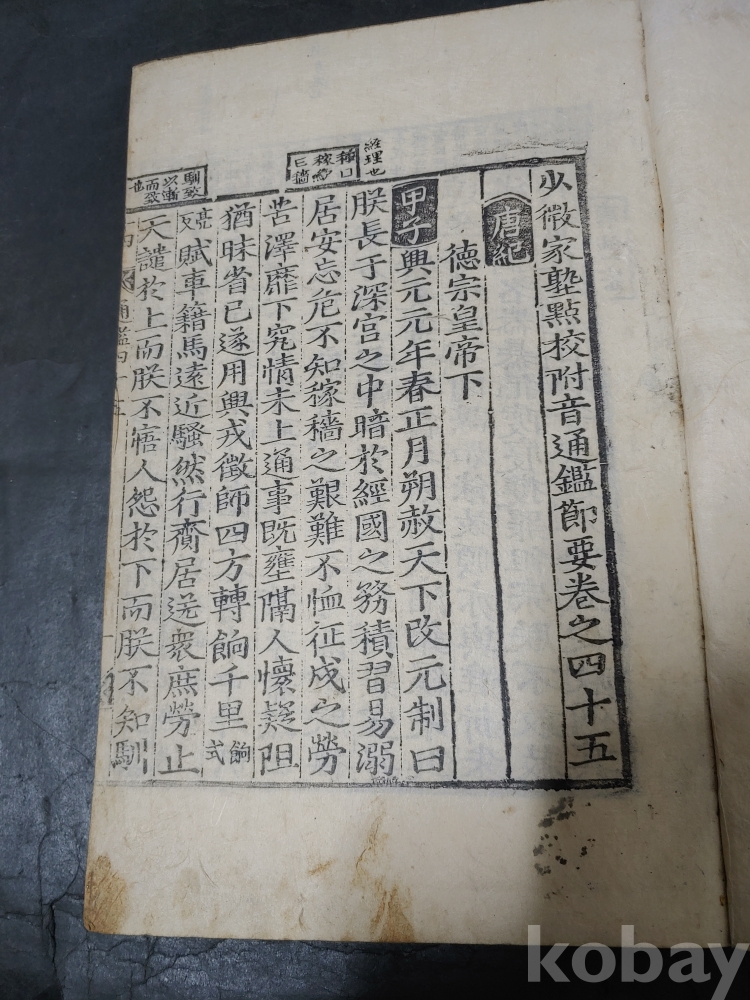 少微家塾點校附音通鑑節要卷之四十五
唐紀
德宗皇帝下
甲子興元元年春正月朔赦天下改元制曰
朕長于深宮之中暗於經國之務積習易溺
居安忘危不知稼穡之艱難不恤征戍之勞
苦澤靡下究情未上通事旣壅隔人懷疑阻
猶昧省己遂用興戎徵師四方轉餉千里餉式
亮反賦車籍馬遠近騷然行齎居送衆庶勞止
天譴於上而朕不寤人怨於下而朕不知馴
經理也
種曰
稼斂
曰穡
馴致
以漸
而致
也
通鑑四十五
kobay